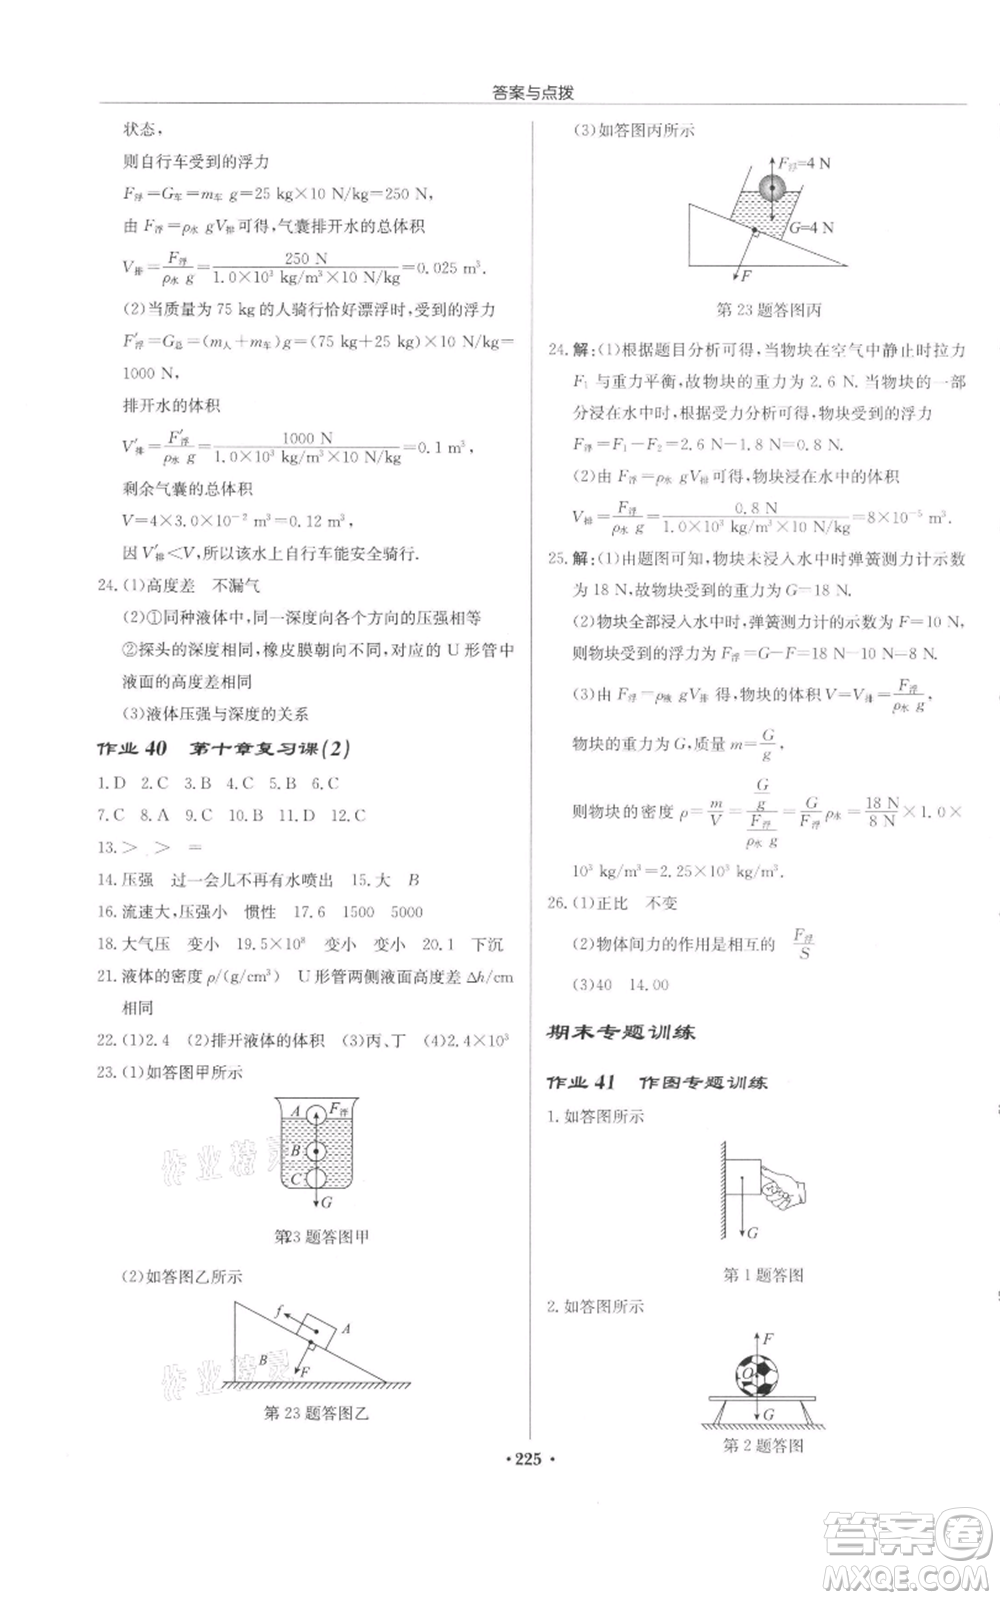 答案与点拨
状态,
则自行车受到的浮力
F浮=G车=m车 g=25 kg×10 N/kg=250 N.
由 F浮=ρ水 gV排可得,气囊排开水的总体积
V排=F浮/ρ水 g=250 N/1.0×10³ kg/m³×10 N/kg=0.025 m³.
(2)当质量为 75 kg 的人骑行恰好漂浮时,受到的浮力
F′浮=G总=(m人+m车)g=(75 kg+25 kg)×10 N/kg=
1000 N,
排开水的体积
V′排=F′浮/ρ水 g=1000 N/1.0×10³ kg/m³×10 N/kg=0.1 m³,
剩余气囊的总体积
V=4×3.0×10⁻² m³=0.12 m³,
因 V′排<V,所以该水上自行车能安全骑行.
24.(1)高度差 不漏气
(2)①同种液体中,同一深度向各个方向的压强相等
②探头的深度相同,橡皮膜朝向不同,对应的 U 形管中
液面的高度差相同
(3)液体压强与深度的关系
作业 40 第十章复习课(2)
1.D 2.C 3.B 4.C 5.B 6.C
7.C 8.A 9.C 10.B 11.D 12.C
13.> > =
14.压强 过一会儿不再有水喷出 15.大 B
16.流速大,压强小 惯性 17.6 1500 5000
18.大气压 变小 19.5×10⁸ 变小 变小 20.1 下沉
21.液体的密度 ρ/(g/cm³) U 形管两侧液面高度差 Δh/cm
相同
22.(1)2.4 (2)排开液体的体积 (3)丙、丁 (4)2.4×10³
23.(1)如答图甲所示
A F浮
B
C
G
第23题答图甲
(2)如答图乙所示
f A
B F
第 23 题答图乙
(3)如答图丙所示
F浮=4 N
G=4 N
F
第 23 题答图丙
24.解:(1)根据题目分析可得,当物块在空气中静止时拉力
F₁ 与重力平衡,故物块的重力为 2.6 N.当物块的一部
分浸在水中时,根据受力分析可得,物块受到的浮力
F浮=F₁−F₂=2.6 N−1.8 N=0.8 N.
(2)由 F浮=ρ水 gV排可得,物块浸在水中的体积
V排=F浮/ρ水 g=0.8 N/1.0×10³ kg/m³×10 N/kg=8×10⁻⁵ m³.
25.解:(1)由题图可知,物块未浸入水中时弹簧测力计示数
为 18 N,故物块受到的重力为 G=18 N.
(2)物块全部浸入水中时,弹簧测力计的示数为 F=10 N,
则物块受到的浮力为 F浮=G−F=18 N−10 N=8 N.
(3)由 F浮=ρ液 gV排 得,物块的体积 V=V排=F浮/ρ水 g,
物块的重力为 G,质量 m=G/g,
则物块的密度 ρ=m/V=G/g/F浮/ρ水 g=G/F浮 ρ水=18 N/8 N×1.0×
10³ kg/m³=2.25×10³ kg/m³.
26.(1)正比 不变
(2)物体间力的作用是相互的 F浮/S
(3)40 14.00
期末专题训练
作业 41 作图专题训练
1.如答图所示
G
第 1 题答图
2.如答图所示
F
O
G
第 2 题答图
·225·
作业精灵
作业精灵
答案卷
MXQE.COM